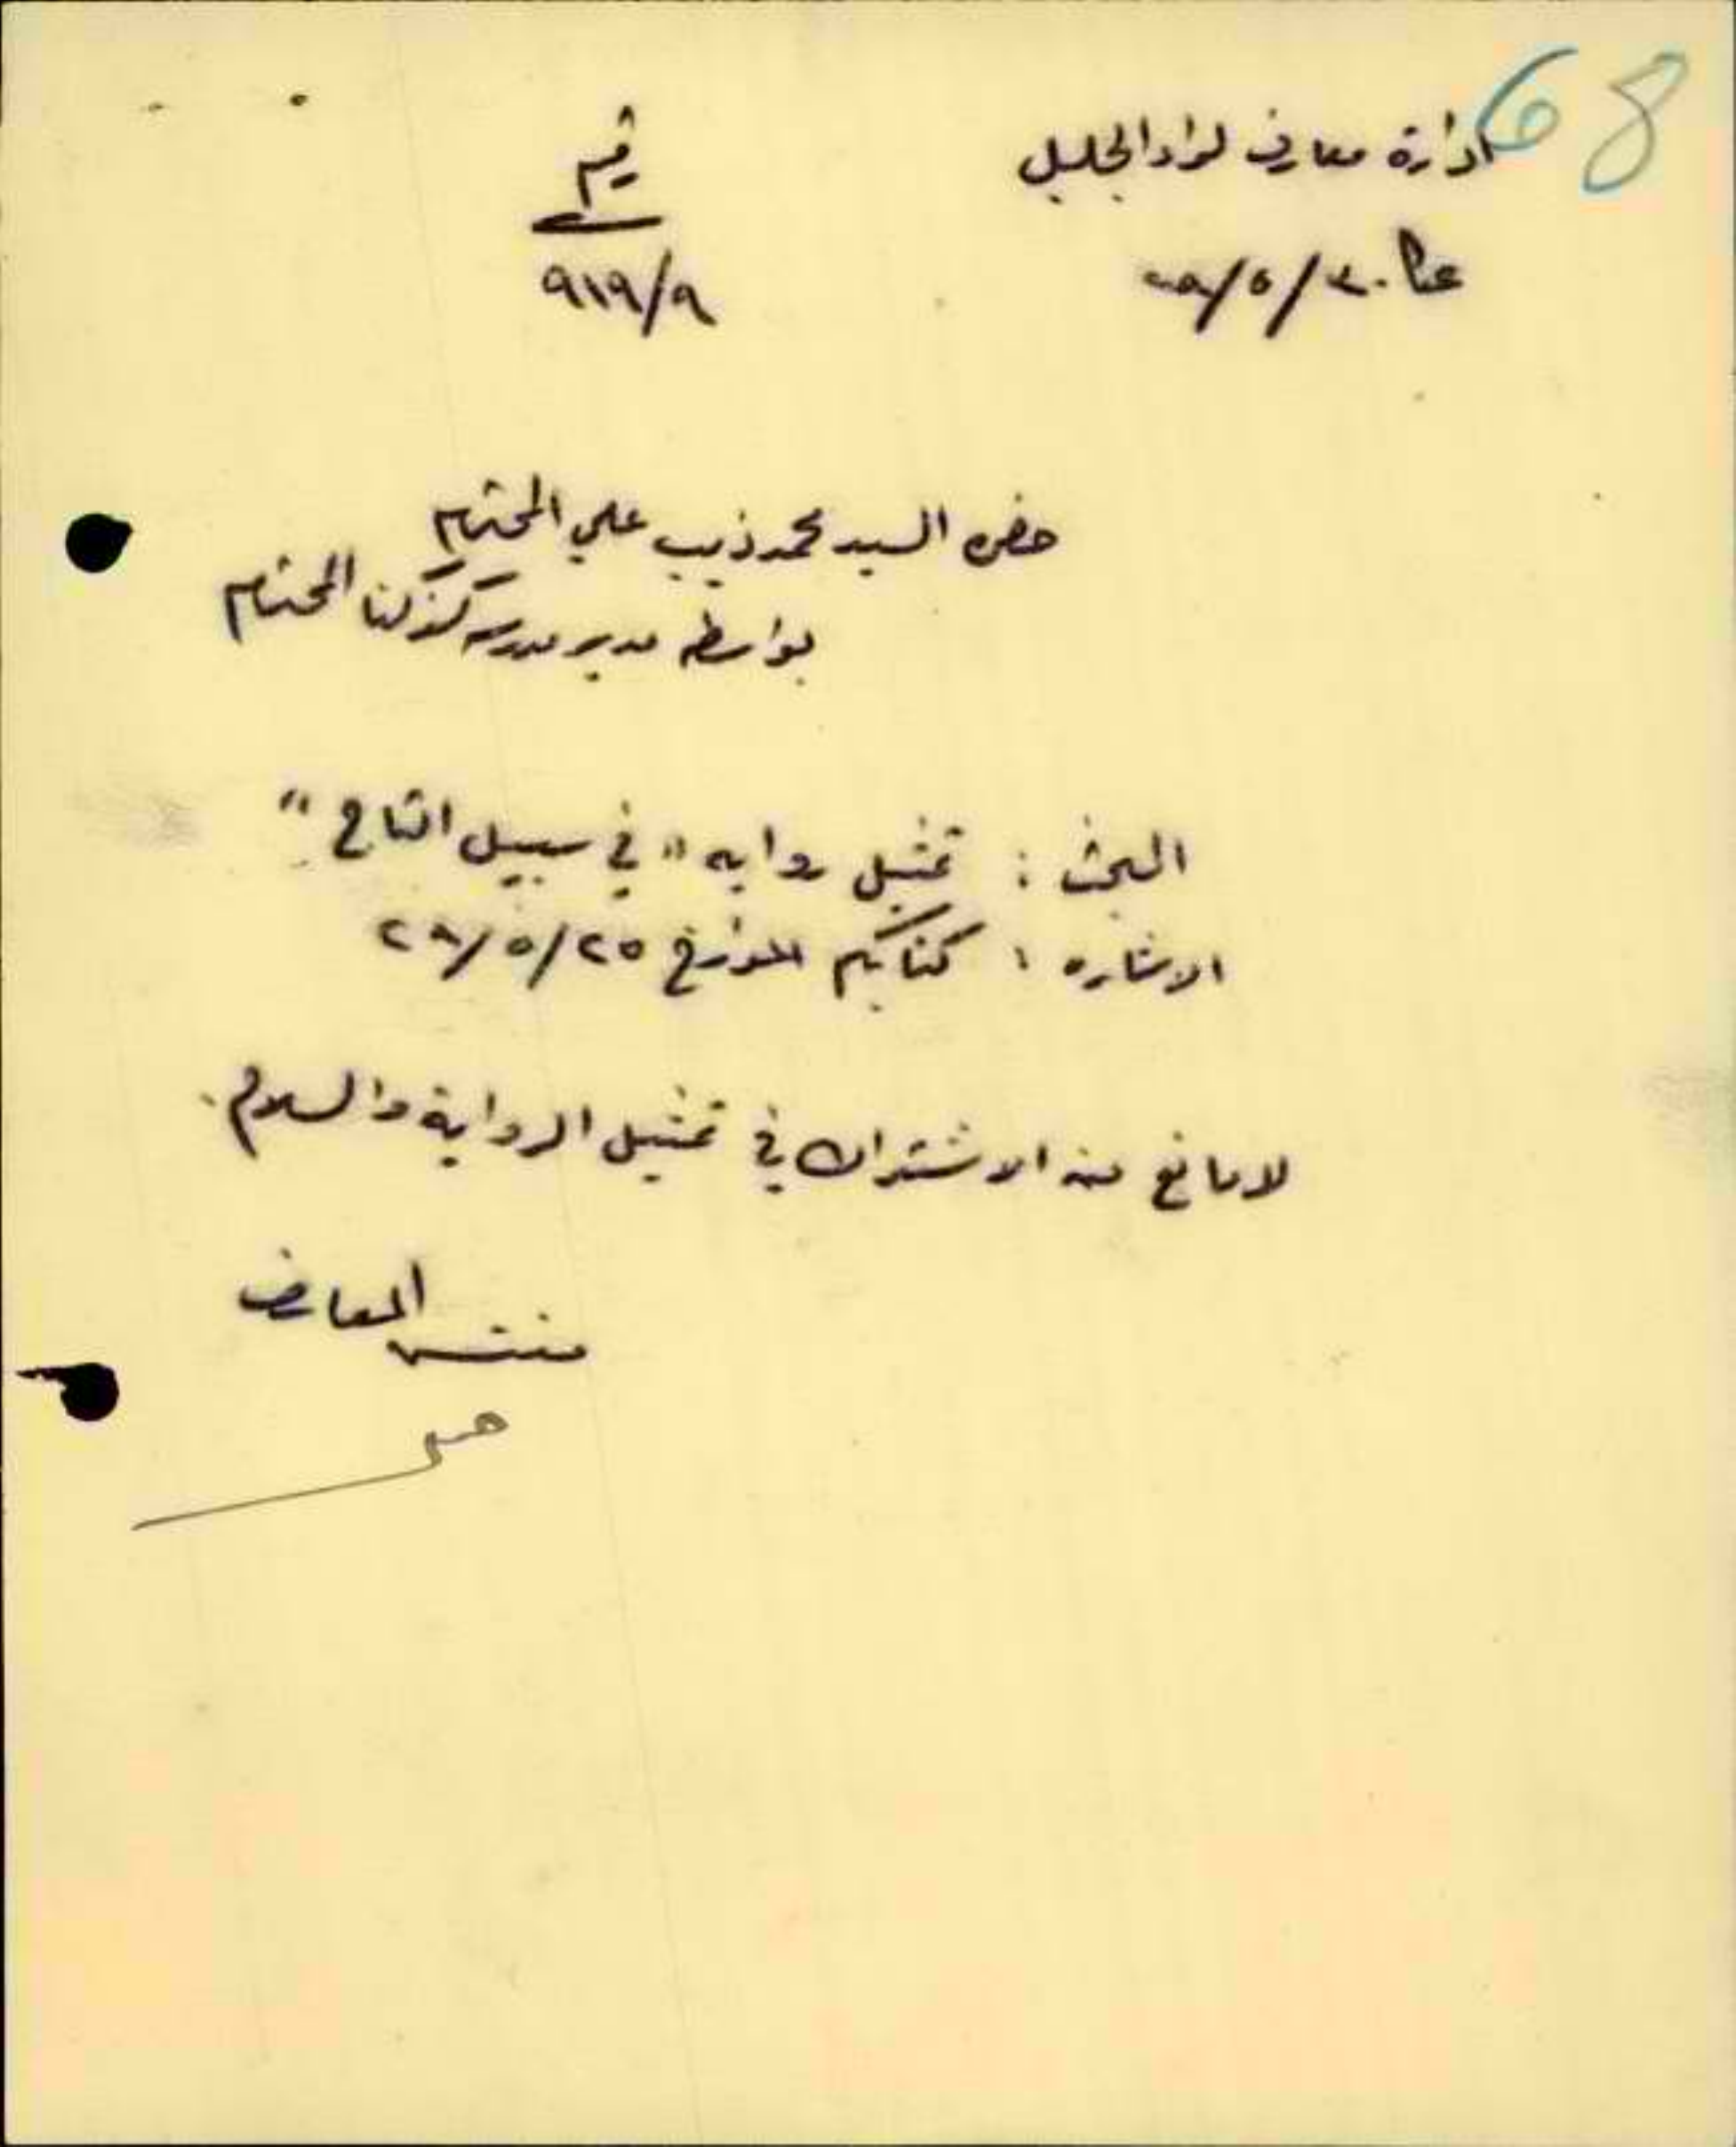 68
ادارة معارف لواء الجليل
عكا ٣٠/٥/٢٩
رقم
٩١٩/٩
حضره السيد محمد ذيب علي المحترم
بواسطه مدير مدرسه المحترم
البحث : تمثيل روايه " في سبيل التاج "
الاشاره : كتابكم المؤرخ ٢٥/٥/٢٩
لا مانع من الاشتراك في تمثيل الرواية والسلام .
مفتش المعارف